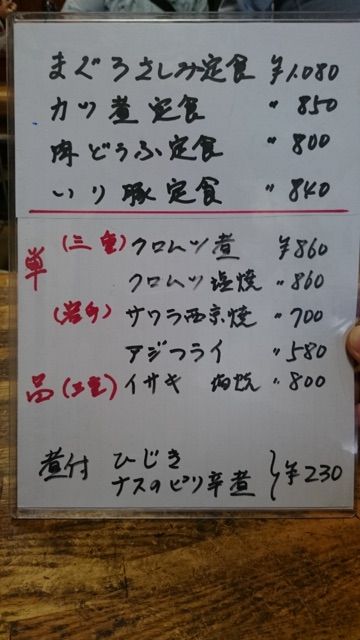 まぐろさしみ定食 ¥1.080
カツ煮定食 〃 850
肉どうふ定食 〃 800
いり豚定食 〃 840
単品
(三重) クロムツ煮 ¥860
クロムツ塩焼 〃 860
(岩手) サワラ西京焼 〃 700
アジフライ 〃 580
(三重) イサキ 塩焼 〃 800
煮付 ひじき
ナスのピリ辛煮 } ¥230